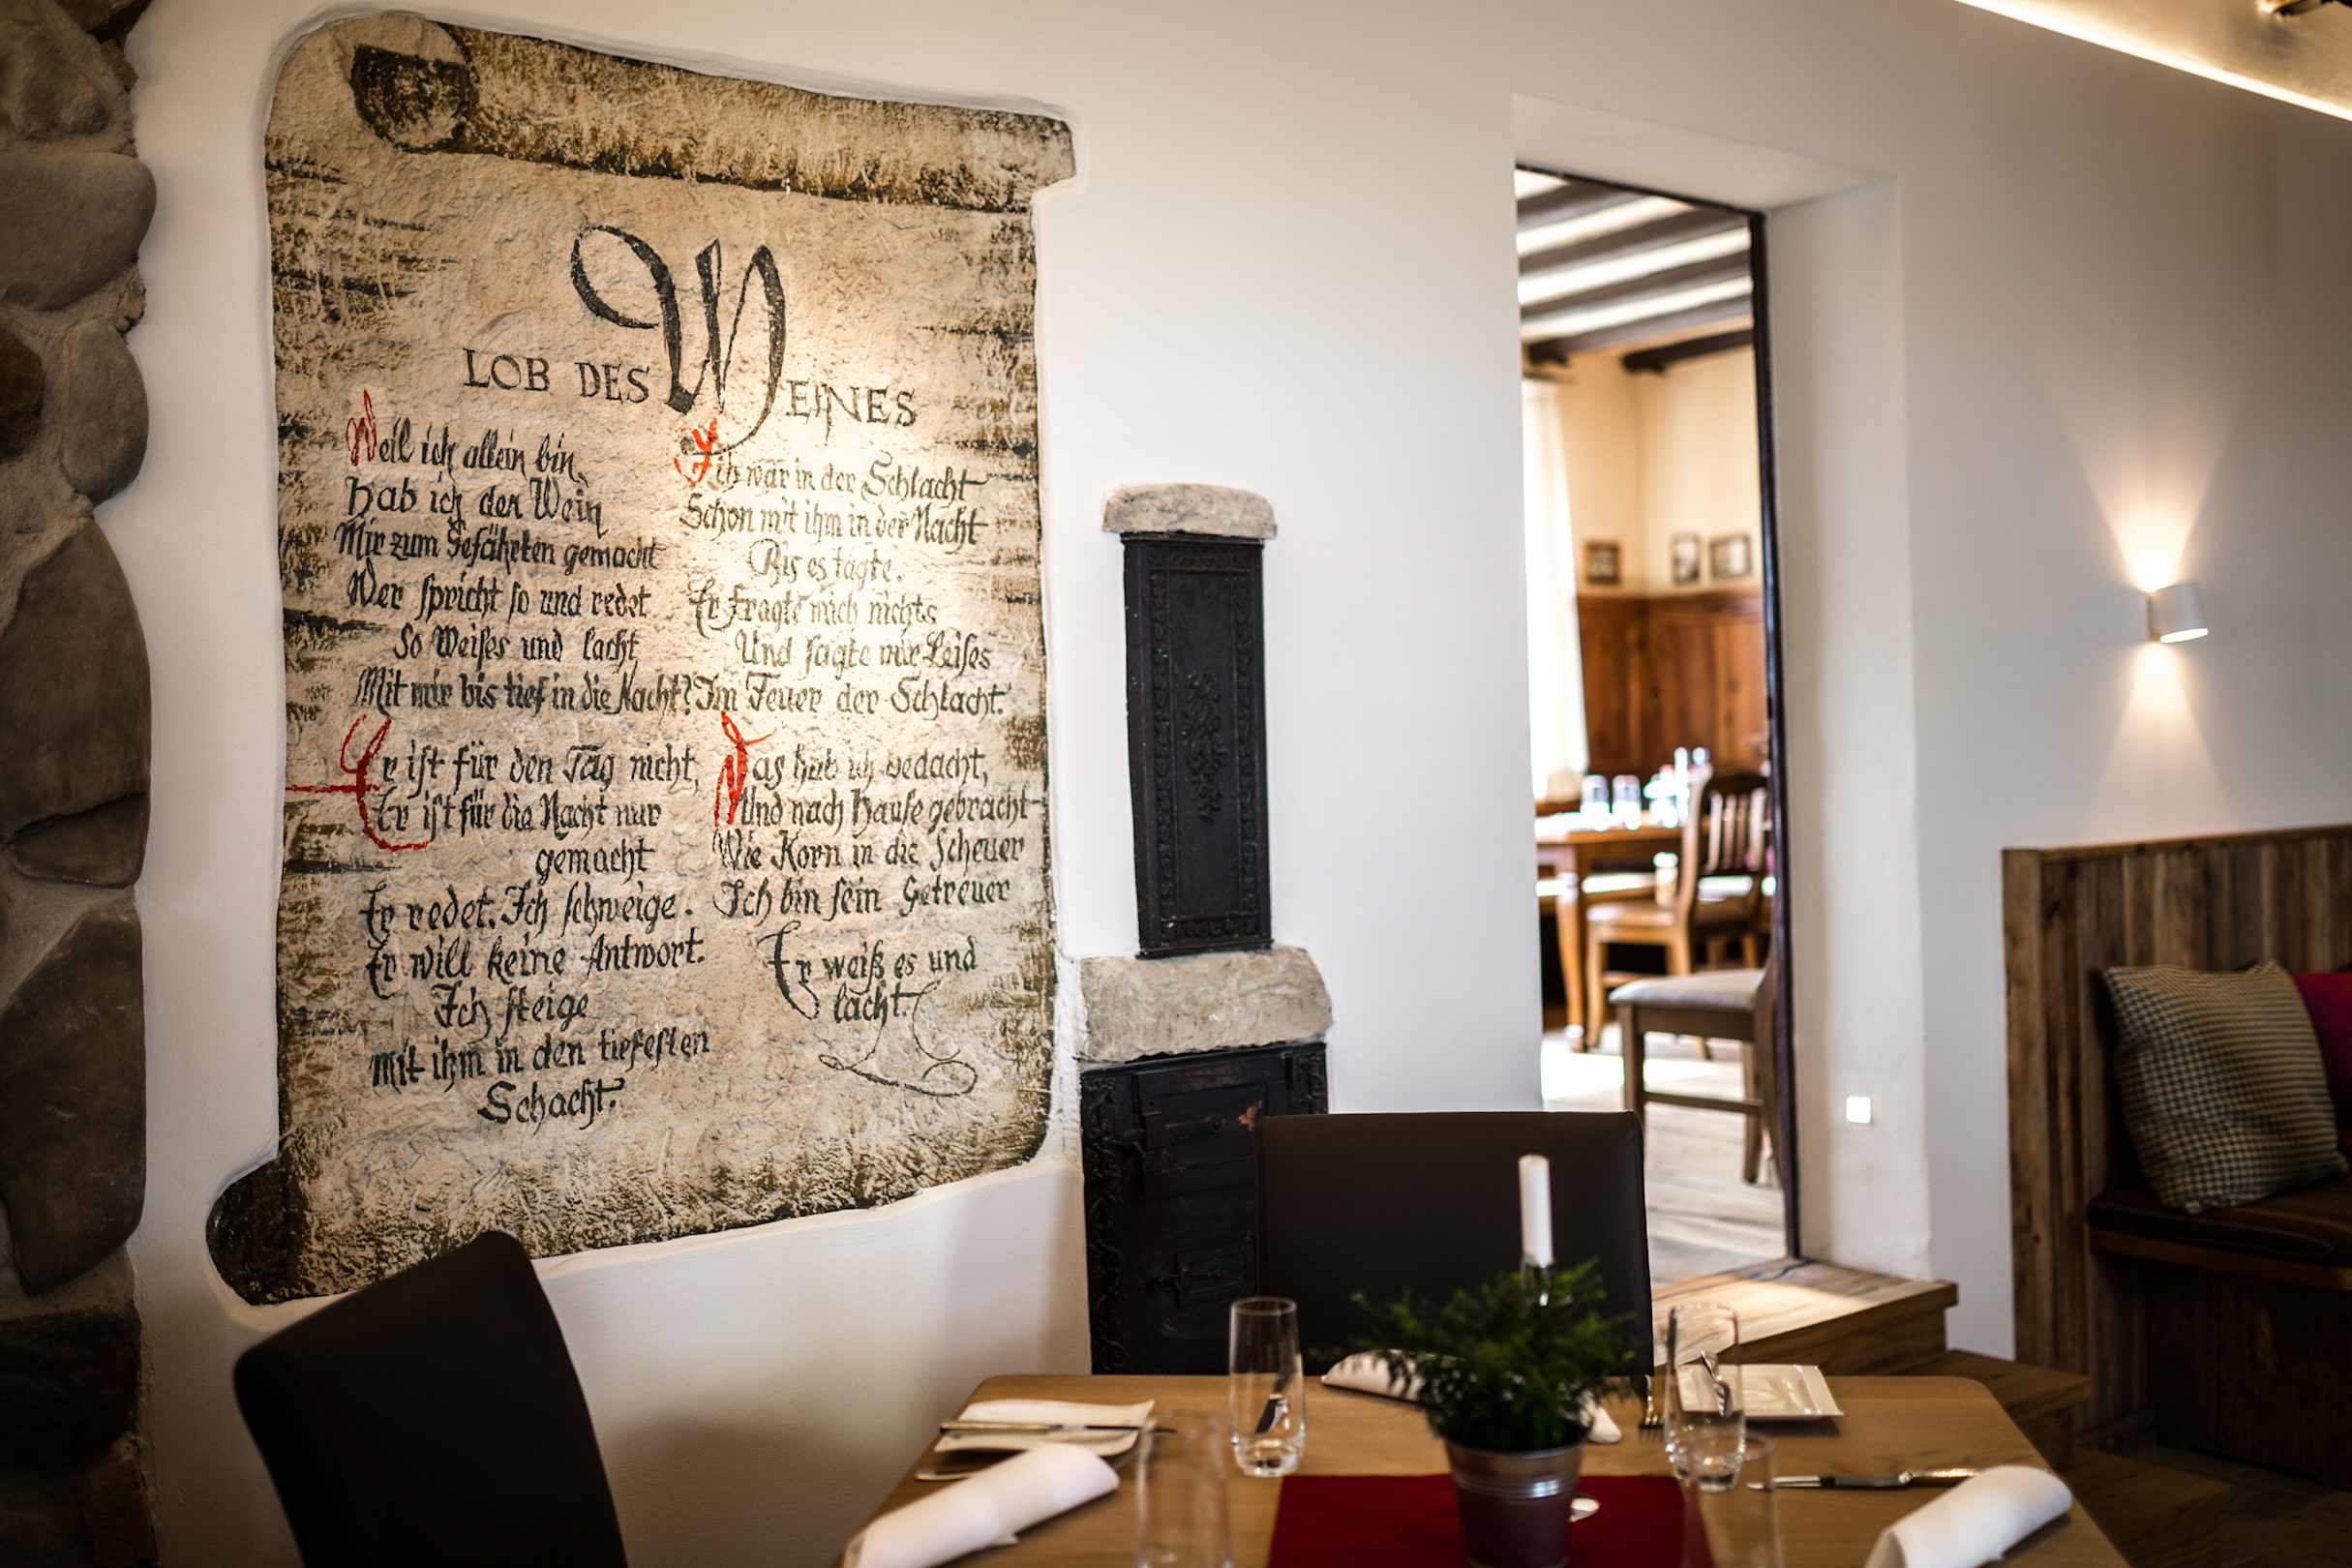 LOB DES WEINES
Weil ich allein bin,
Hab ich den Wein
Mir zum Gefährten gemacht
Wer spricht so und redet
So Weises und lacht,
Mit mir bis tief in die Nacht?
Er ist für den Tag nicht,
Er ist für die Nacht nur
gemacht
Er redet. Ich schweige.
Er will keine Antwort.
Ich steige
mit ihm in den tiefesten
Schacht.
Ich war in der Schlacht
Schon mit ihm in der Nacht
Bis es tagte.
Er fragte mich nichts
Und sagte mir Leises
Im Feuer der Schlacht.
Das hab ich bedacht,
Und nach Hause gebracht
Wie Korn in die Scheuer
Ich bin sein Getreuer
Er weiß es und
lacht.